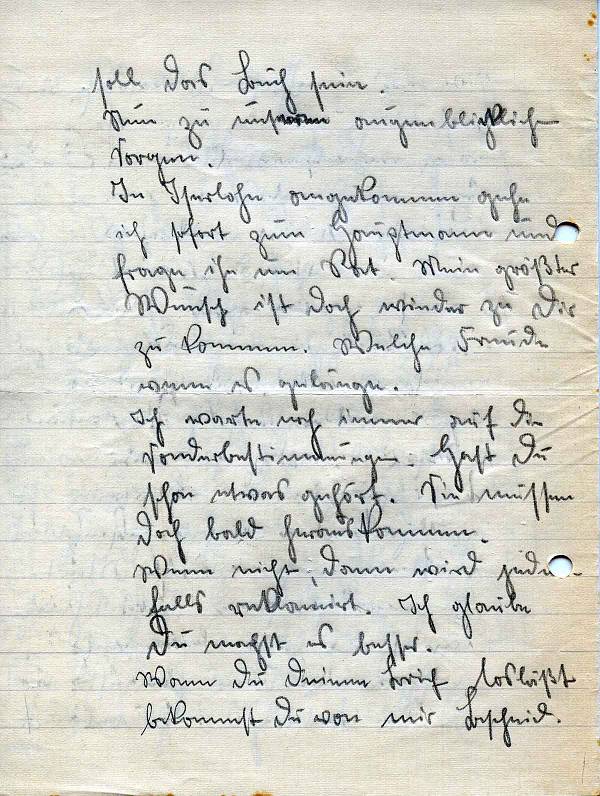 soll das Buch sein.
Nun zu unseren augenblicklichen
Sorgen.
In Iserlohn angekommen gehe
ich sofort zum Hauptmann und
frage ihn um Rat. Mein größter
Wunsch ist doch wieder zu Dir
zu kommen. Welche Freude
wenn es gelänge.
Ich warte noch immer auf die
Sonderbestimmungen. Hast Du
schon etwas gehört. Sie müssen
doch bald herauskommen.
Wenn nicht, dann wird jeden-
falls reklamiert. Ich glaube
Du machst es besser.
Wann Du Deinen Brief losläßt
bekommst Du von mir Bescheid.